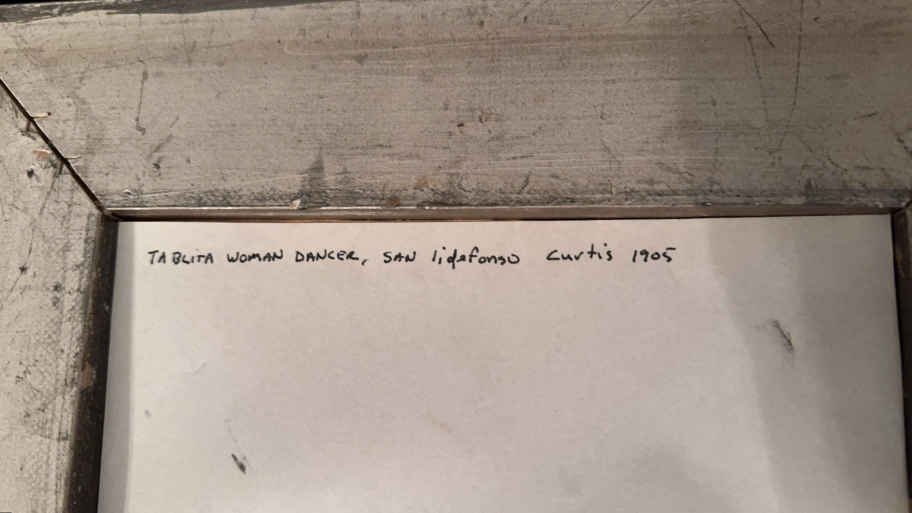 TABLITA WOMAN DANCER, SAN lidefonso Curtis 1905